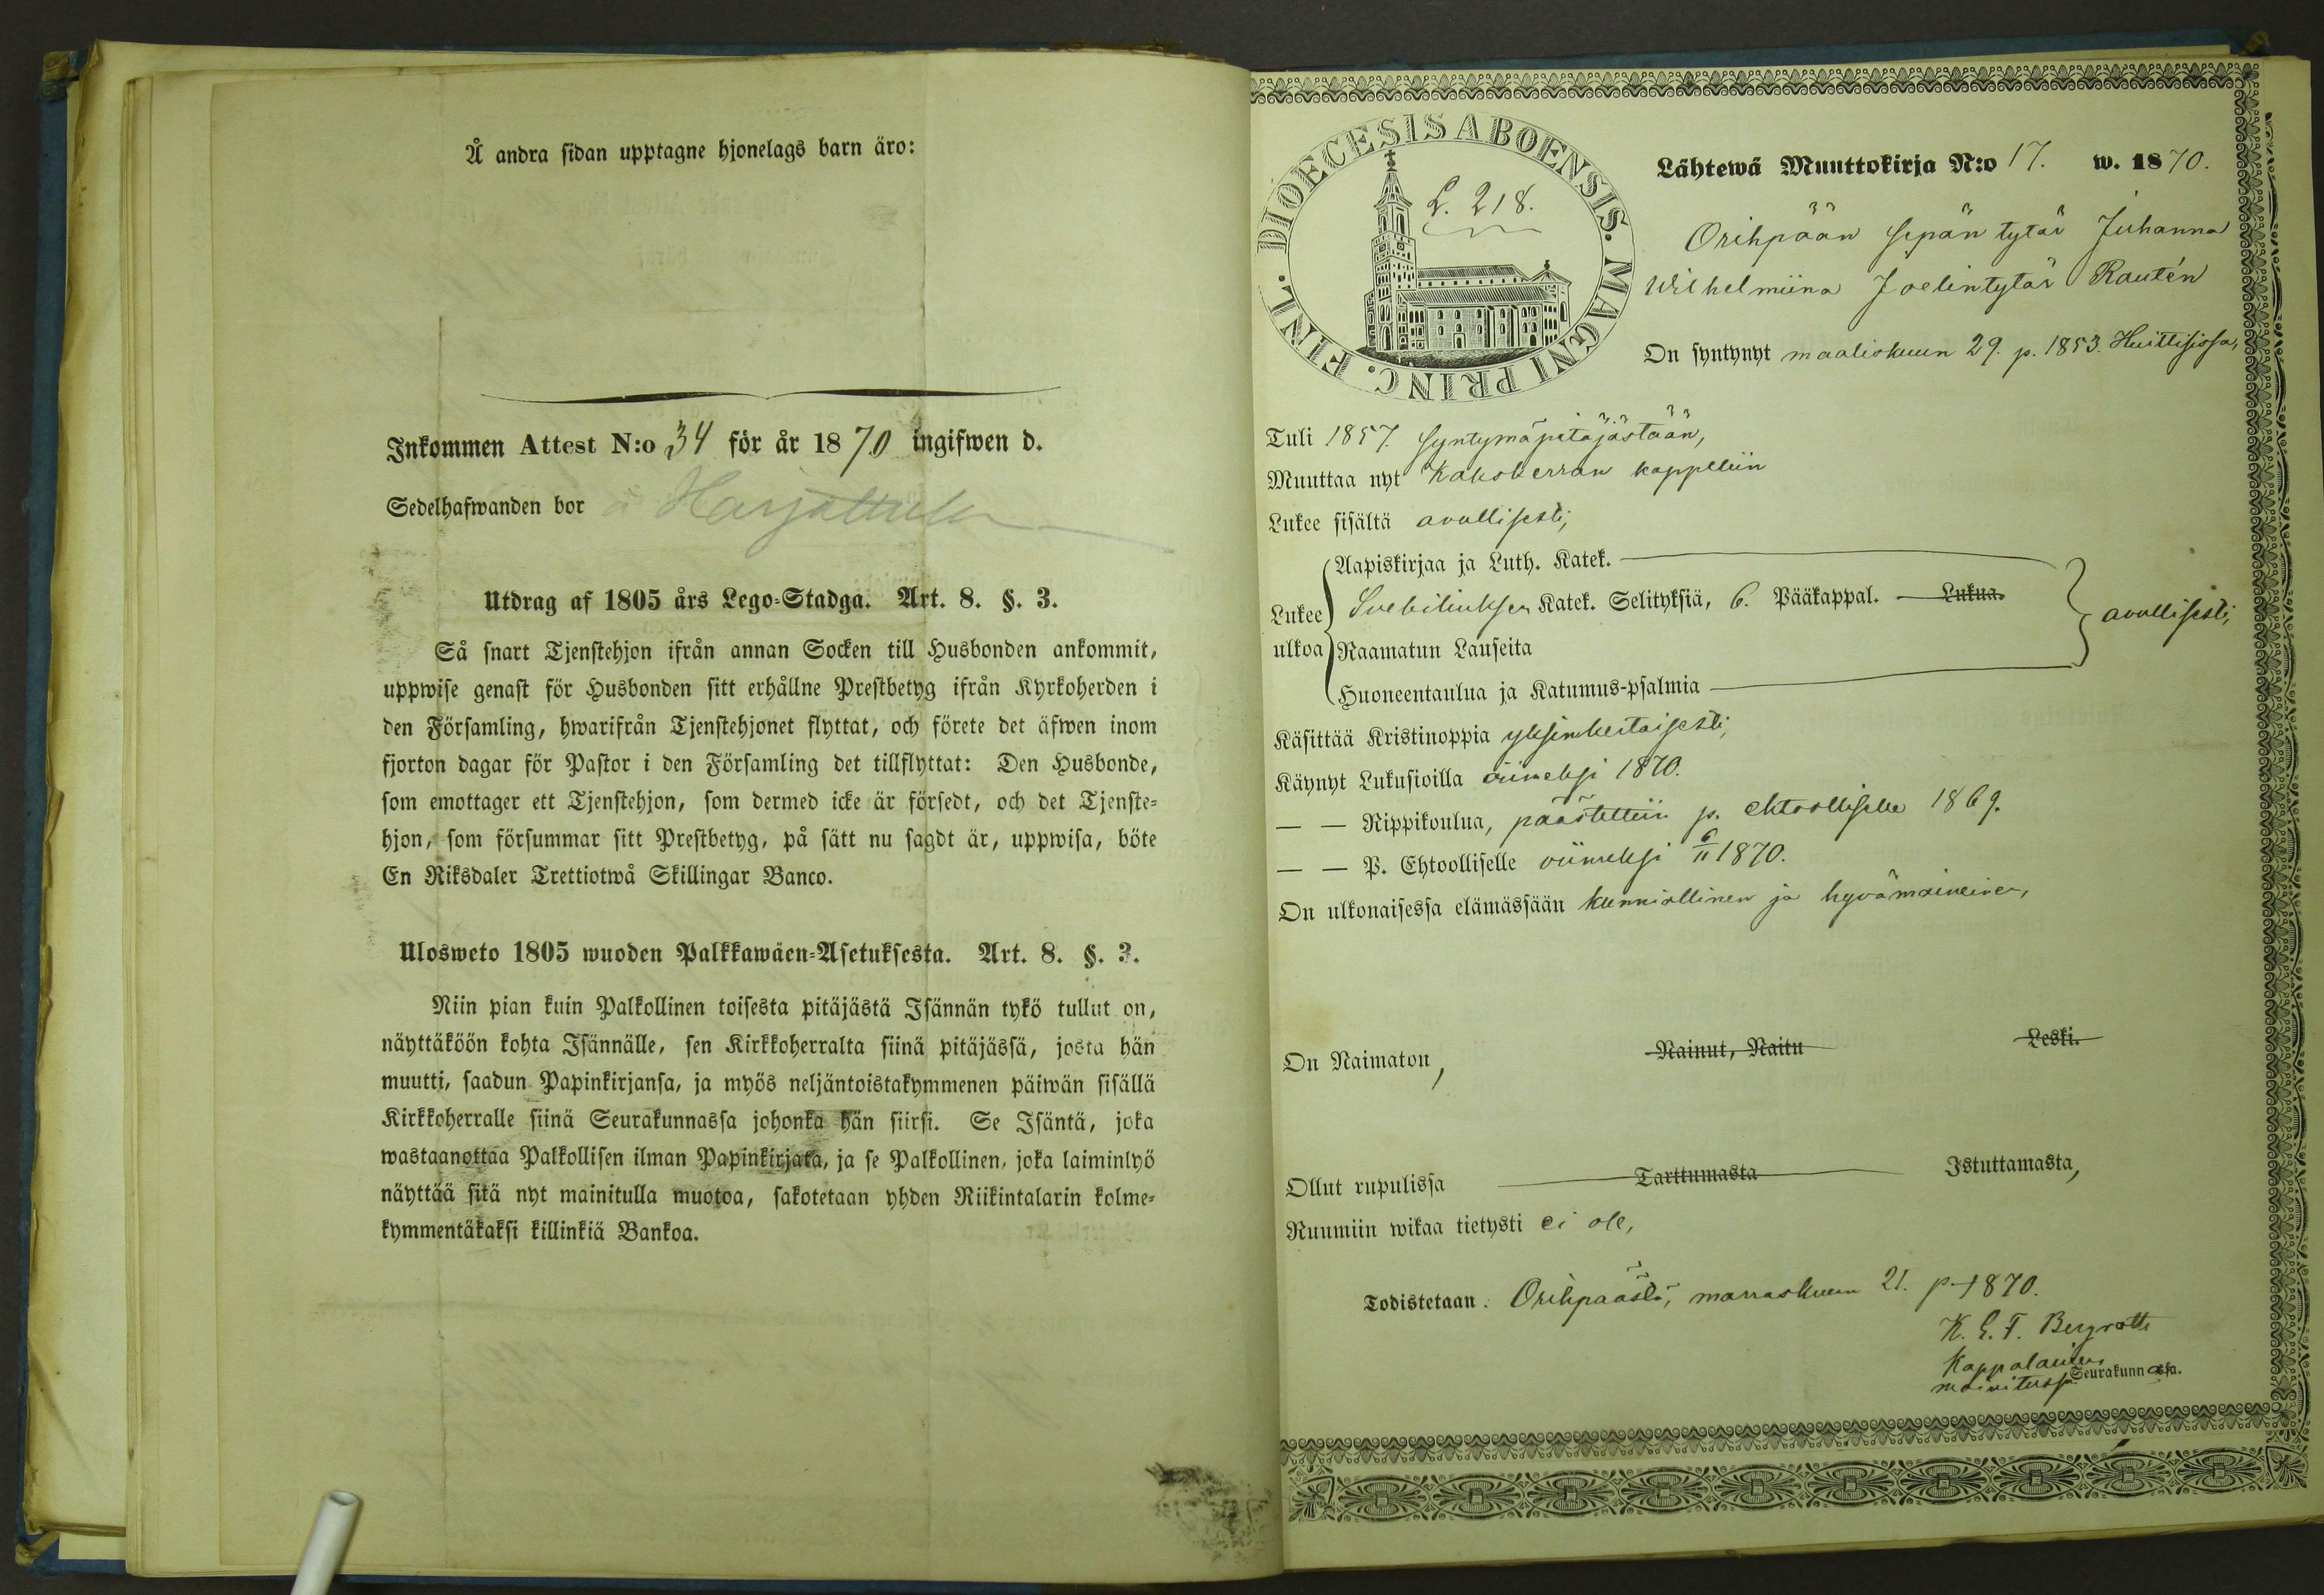 Å andra sidan upptagne hjonelags barn äro:
Inkommen Attest N:o 34 för år 1870 ingifwen d.
Sedelhafwanden bor å Harjattula
Utdrag af 1805 års Lego-Stadga. Art. 8. §. 3.
Så snart Tjenstehjon ifrån annan Socken till Husbonden ankommit,
uppwise genast för Husbonden sitt erhållne Prestbetyg ifrån Kyrkoherden i
den Församling, hwarifrån Tjenstehjonet flyttat, och förete det äfwen inom
fjorton dagar för Pastor i den Församling det tillflyttat: Den Husbonde,
som emottager ett Tjenstehjon, som dermed icke är försedt, och det Tjenste-
hjon, som försummar sitt Prestbetyg, på sätt nu sagdt är, uppwisa, böte
En Riksdaler Trettiotwå Skillingar Banco.
Ulosweto 1805 wuoden Palkkawäen-Asetuksesta. Art. 8. §. 3.
Niin pian kuin Palkollinen toisesta pitäjästä Isännän tykö tullut on,
näyttäköön kohta Isännälle, sen Kirkkoherralta siinä pitäjässä, josta hän
muutti, saadun Papinkirjansa, ja myös neljäntoistakymmenen päiwän sisällä
Kirkkoherralle siinä Seurakunnassa johonka hän siirsi. Se Isäntä, joka
wastaanottaa Palkollisen ilman Papinkirjata, ja se Palkollinen, joka laiminlyö
näyttää sitä nyt mainitulla muotoa, sakotetaan yhden Riikintalarin kolme-
kymmentäkaksi killinkiä Bankoa.
FINL. DIOECESIS ABOENSIS. MAGNI PRINC.
L. 218.
Lähtewä Muuttokirja N:o 17. w. 1870.
Orihpään sepän tytär Juhanna
Wilhelmiina Joelintytär Rautén
On syntynyt maaliskuun 29. p. 1853. Huittisissa,
Tuli 1857. syntymäpitäjästään,
Muuttaa nyt Kakskerran kappeliin
Lukee sisältä avullisesti,
Aapiskirjaa ja Luth. Katek.
Lukee ulkoa Svebiliuksen Katek. Selityksiä, 6. Pääkappal. Lukua. avullisesti,
Raamatun Lauseita
Huoneentaulua ja Katumus-psalmia
Käsittää Kristinoppia yksinkertaisesti,
Käynyt Lukusioilla viimeksi 1870.
— — Rippikoulua, päästettiin p. ehtoolliselle 1869.
— — P. Ehtoolliselle viimeksi 6/11 1870.
On ulkonaisessa elämässään kunniallinen ja hyvämaineinen,
On Naimaton, Nainut, Naitu Leski.
Ollut rupulissa Tarttumasta Istuttamasta,
Ruumiin wikaa tietysti ei ole,
Todistetaan. Orihpäästä, marraskuun 21. p. 1870.
K. E. F. Bergroth
Kappalainen
mainitussa Seurakunnassa.